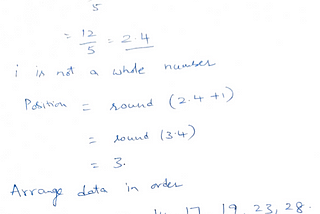 5
= 12/5 = 2.4
i is not a whole number
Position = round (2.4 +1)
= round (3.4)
= 3.
Arrange data in order
17, 19, 23, 28.